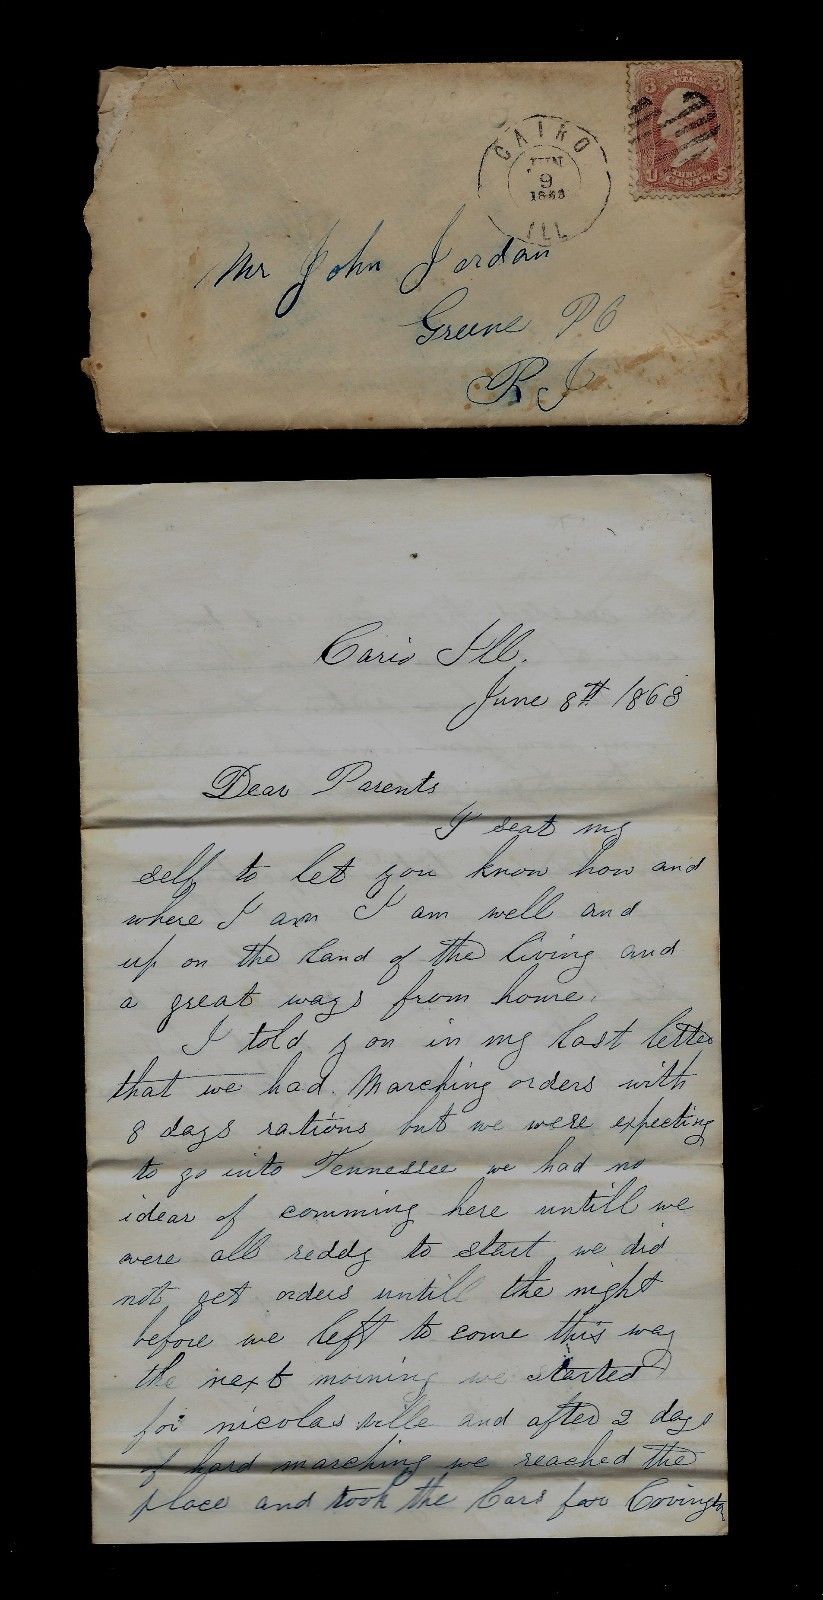 CAIRO
JUN
9
1863
ILL
3 3
U S
Mr John Jordan
Greene P O
R I
Cario Ill.
June 8th 1863
Dear Parents
I seat my
self to let you know how and
where I am I am well and
up on the land of the living and
a great ways from home.
I told you in my last letter
that we had Marching orders with
8 days rations but we were expecting
to go into Tennessee we had no
idear of comming here untill we
were all reddy to start we did
not get orders untill the night
before we left to come this way
the next morning we started
for nicolasville and after 2 days
of hard marching we reached the
place and took the Cars for Covington